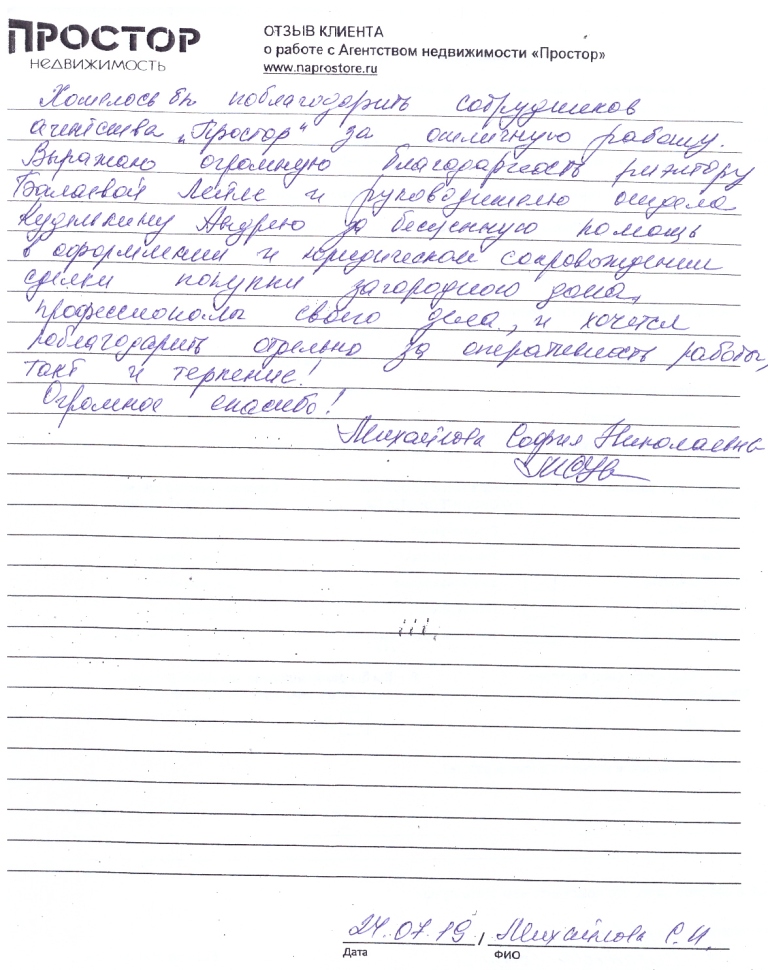 ПРОСТОР
НЕДВИЖИМОСТЬ
ОТЗЫВ КЛИЕНТА
о работе с Агентством недвижимости «Простор»
www.naprostore.ru
Хотелось бы поблагодарить сотрудников
агентства „Простор" за отличную работу.
Выражаю огромную благодарность риэлтору
Балаевой Лейле и руководителю отдела
Кузькину Андрею за бесценную помощь
в оформлении и юридическом сопровождении
сделки покупки загородного дома,
профессионалы своего дела, и хочется
поблагодарить отдельно за оперативность работы,
такт и терпение!
Огромное спасибо!
Михайлова София Николаевна
24.07.19 / Михайлова С.Н.
Дата ФИО